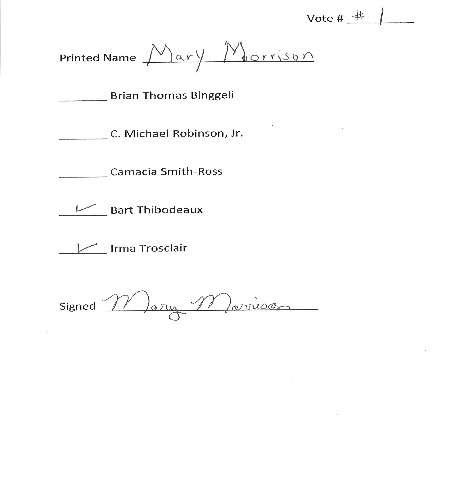 Vote # # 1
Printed Name Mary Morrison
Brian Thomas Binggeli
C. Michael Robinson, Jr.
Camacia Smith-Ross
✓ Bart Thibodeaux
✓ Irma Trosclair
Signed Mary Morrison